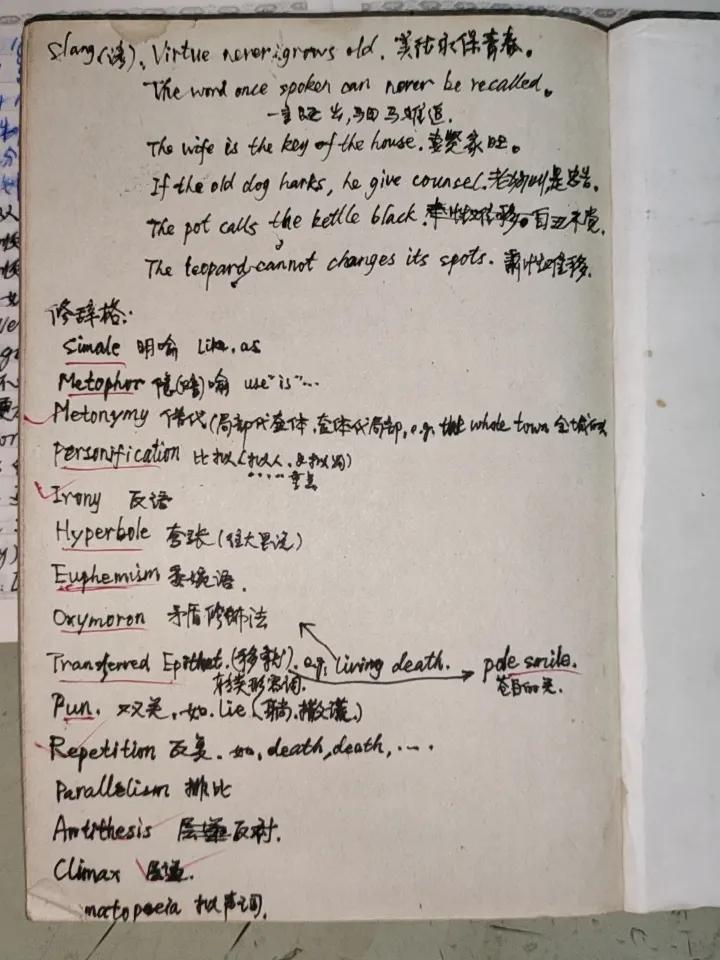 slang(谚). Virtue never grows old. 美德永保青春。
The word once spoken can never be recalled.
一言既出,驷马难追.
The wife is the key of the house. 妻贤家旺。
If the old dog harks, he give counsel. 老狗叫是忠告。
The pot calls the kettle black. 自丑不觉.
The leopard cannot changes its spots. 禀性难移.
修辞格:
Simale 明喻 like, as
Metophor 隐(暗)喻 use "is"...
Metonymy 借代(局部代整体,整体代局部, e.g. the whole town 全城
Personification 比拟(拟人,
重点
Irony 反语
Hyperbole 夸张(往大里说)
Euphemism 委婉语.
Oxymoron 矛盾修饰法
Transferred Epithet.(移就). e.g. living death. pale smile.
转类形容词. 苍白的笑.
Pun. 双关. 如. lie (躺. 撒谎.)
Repetition 反复. 如, death, death, ....
Parallelism 排比
Antithesis 反对.
Climax 层递.
matopoeia 拟声词.